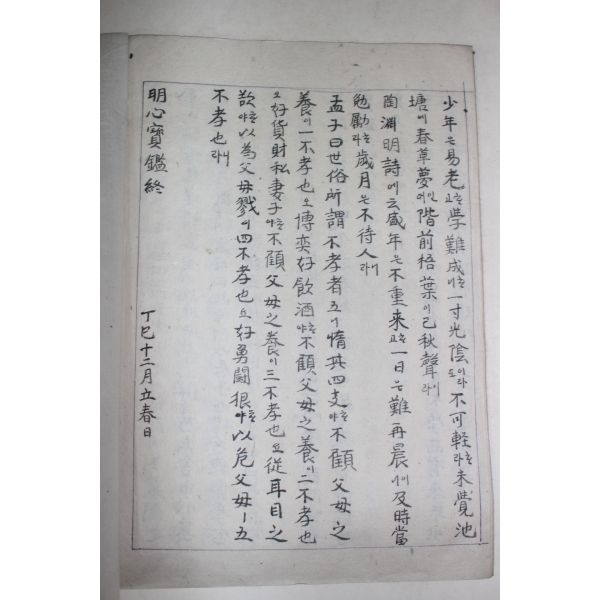 少年은易老고學難成니一寸光陰이라도不可輕라未覺池
塘에春草夢여階前梧葉이已秋聲라
陶淵明詩에云盛年은不重来고一日은難再晨니及時當
勉勵라歲月은不待人라
孟子曰世俗所謂不孝者五니惰其四支야不顧父母之
養이一不孝也오博奕好飮酒야不顧父母之養이二不孝也
오好貨財私妻子야不顧父母之養이三不孝也오從耳目之
欲야以為父母戮이四不孝也오好勇鬪狠야以危父母ㅣ五
不孝也라
明心寶鑑終
丁巳十二月立春日